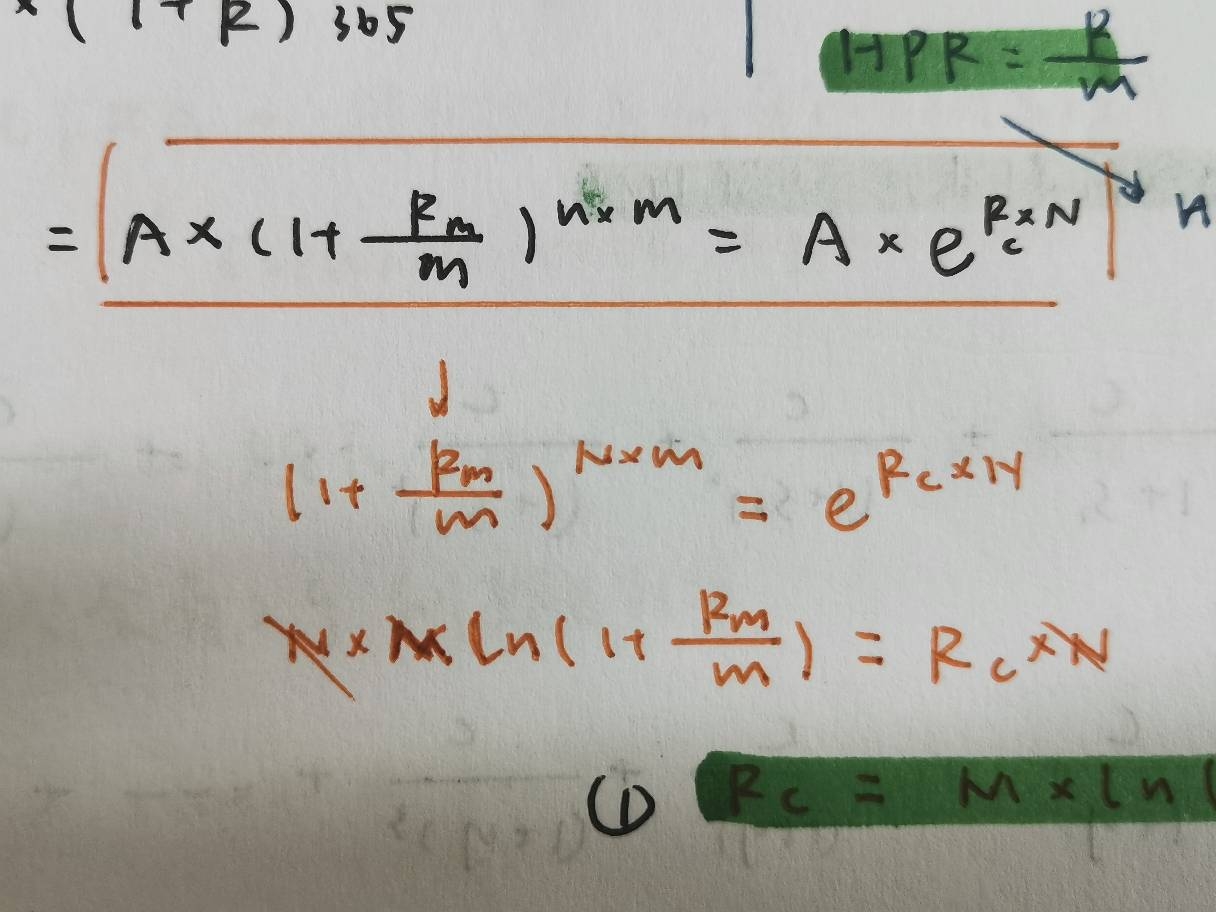 × ( 1 + R ) 365
HPR = R/m
= A × (1 + Rm/m)^n×m = A × e^Rc×N
n
↓
(1 + Rm/m)^N×m = e^Rc×N
N × M ln(1 + Rm/m) = Rc × N
① Rc = M × ln(